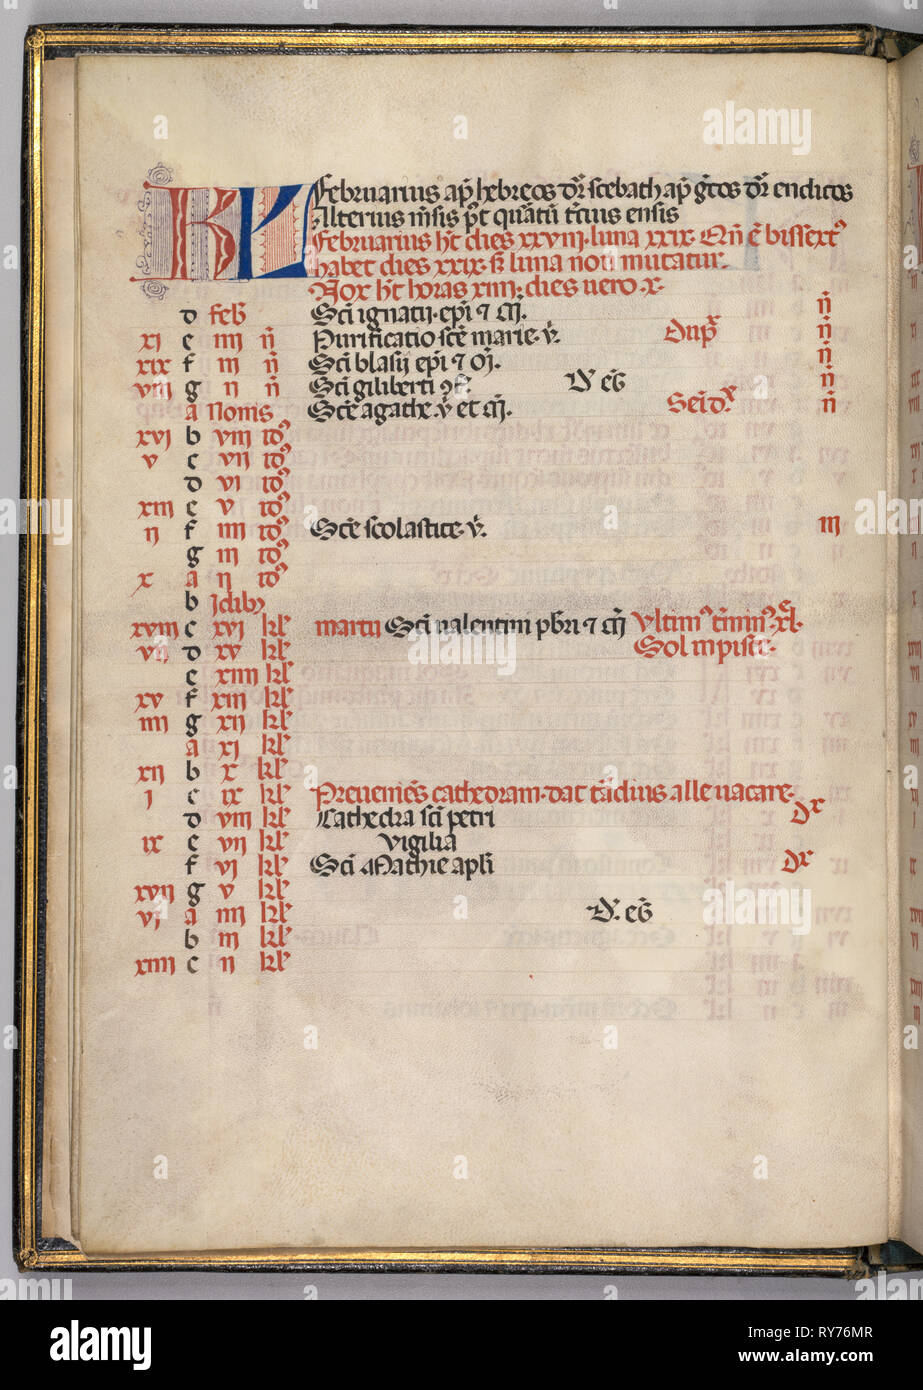 KL Februarius ap̄ hebreos dr̄ scebath ap̄ gr̄cos dr̄ endicos
Alterius m̄sis p̄t quātū tc̄ius ensis
Februarius hc̄ dies xxviii. luna xxix. Qn̄ ē bissext'
habet dies xxix. s; luna non mutatur.
Nox hc̄ horas xiiii. dies vero x.
d febr̄ Sc̄i ignatii. ep̄i ⁊ m̄. n̄
xi e iiii n̄ Purificatio sc̄e marie. v̄. Dupx n̄
xix f iii n̄ Sc̄i blasii ep̄i ⁊ m̄. n̄
viii g ii n̄ Sc̄i giliberti ꝯf. D' eḡ n̄
a Nonis Sc̄e agathe. v̄ et m̄. Semd'x n̄
xvi b viii id'
v c vii id'
d vi id'
xiii e v id'
ii f iiii id' Sc̄e scolastice. v̄. iii
g iii id'
x a ii id'
b Idib;
xviii c xvi kl' martii Sc̄i valentini pb̄ri ⁊ m̄ Vltim' tm̄in' xl.
vii d xv kl' Sol in pisce.
e xiiii kl'
xv f xiii kl'
iiii g xii kl'
a xi kl'
xii b x kl'
i c ix kl' Preueniēs cathedram. dat tādius alle vacare.
d viii kl' Cathedra sc̄i petri dx
ix e vii kl' vigilia
f vi kl' Sc̄i Mathie apl̄i dx
xvii g v kl'
vi a iiii kl' D'. eḡ
b iii kl'
xiiii c ii kl'
alamy
Image ID: RY76MR
www.alamy.com